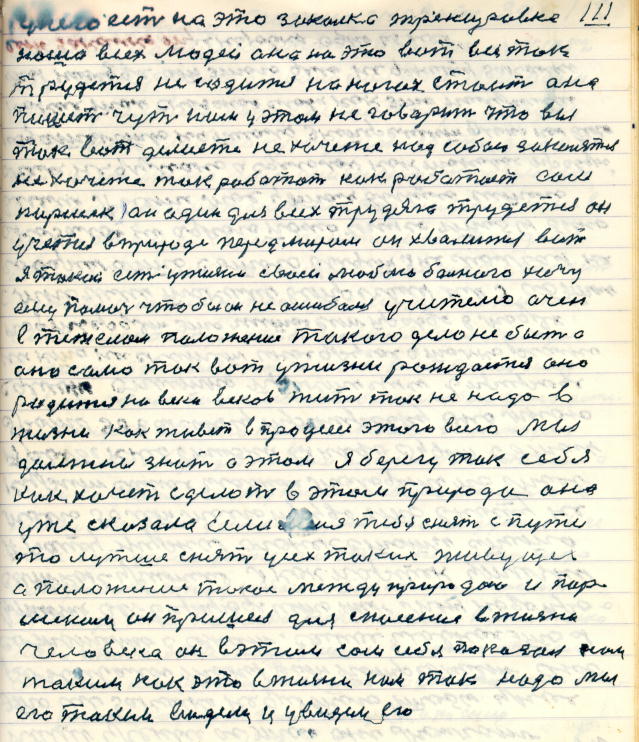 у него есть на это закалка тренировка 111
наша всех людей она на это вот все так
трудятся не садится на ногах стоит она
пишет чут нам у этом не говорит что вы
так вот делаете не хочете над собою заниматся
не хочете так работат как работает сам
паршек он один для всех трудяга трудется он
учется в природе перед миром он хвалится вот
я такой ест у жизни своей люблю бедного хочу
ему помоч чтобы он не ошибался учителю очен
в тяжелам положение такого дело не было
оно само так вот у жизни рождается оно
родится на века веков жит так не надо в
жизни как живет в процесе этого всего мы
должны знат о этом я берегу так себя
как хочет сделат в этом природа она
уже сказала если тебя снят с пути
это лутше снят усех таких живущех
а положение такое между природаю и пар
шеком он пришел для спасение в жизни
человека он в этом сам себя показал нам
таким как это в жизни нам так надо мы
его таким видели и увидем его